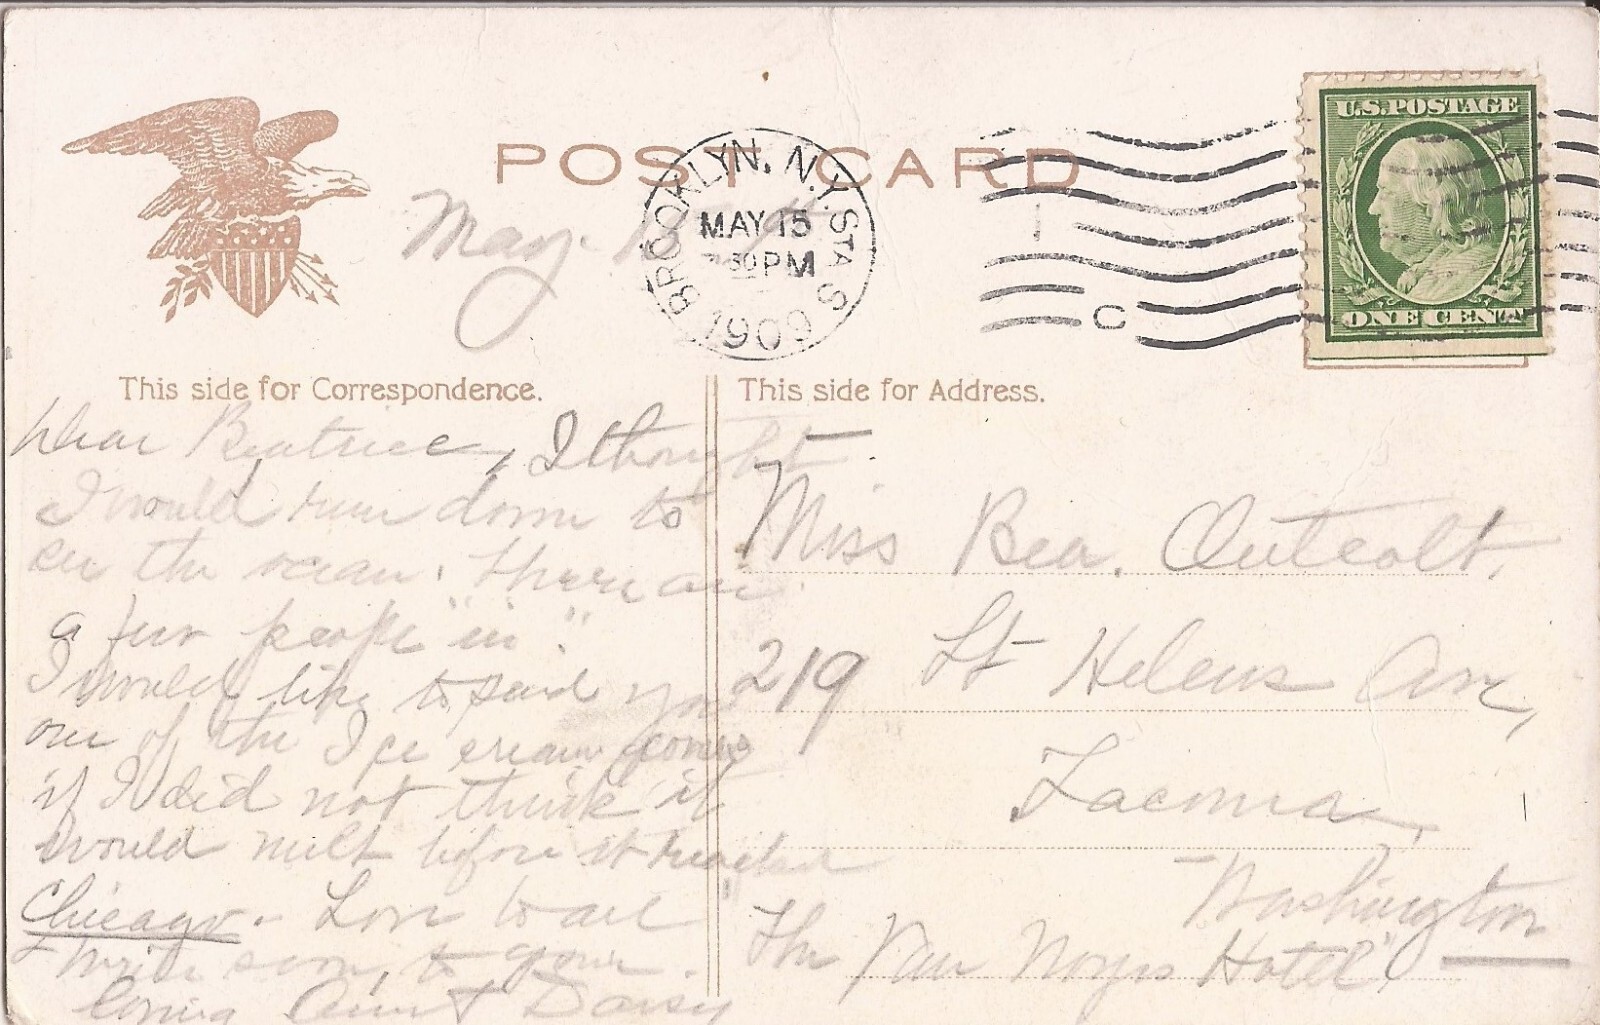 POST CARD
May
BROOKLYN, N.Y. STA S
MAY 15
30 PM
1909
C
U.S. POSTAGE
ONE CENT
This side for Correspondence.
Dear Beatrice, I thought
I would run down to
see the ocean. There are
a few people "in".
I would like to send you
one of the Ice cream cones
if I did not think it
would melt before it reached
Chicago. Love to all
+ write soon, to your
loving Aunt Daisy
This side for Address.
Miss Bea. Outcolt,
219 St Helens Ave,
Tacoma,
Washington
The Van Noys Hotel"